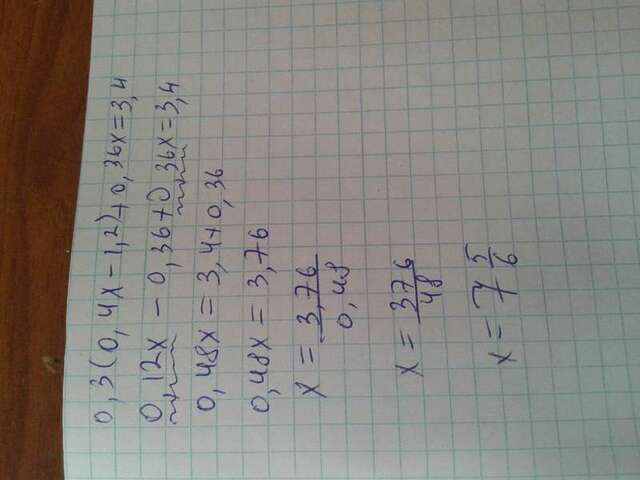 0,3(0,4x-1,2)+0,36x=3,4
0,12x - 0,36+0,36x=3,4
0,48x = 3,4+0,36
0,48x = 3,76
x = 3,76/0,48
x = 376/48
x = 7 5/6